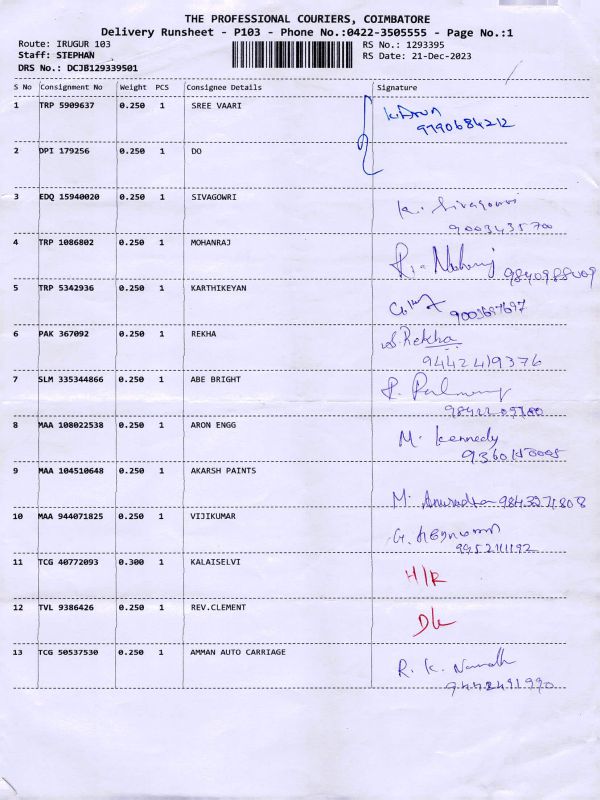 THE PROFESSIONAL COURIERS, COIMBATORE
Delivery Runsheet - P103 - Phone No.:0422-3505555 - Page No.:1
Route: IRUGUR 103 RS No.: 1293395
Staff: STEPHAN RS Date: 21-Dec-2023
DRS No.: DCJB129339501
S No Consignment No Weight PCS Consignee Details Signature
1 TRP 5909637 0.250 1 SREE VAARI K. Arun
9790684212
2 DPI 179256 0.250 1 DO
3 EDQ 15940020 0.250 1 SIVAGOWRI K. Sivagowri
9003435700
4 TRP 1086802 0.250 1 MOHANRAJ
5 TRP 5342936 0.250 1 KARTHIKEYAN
6 PAK 367092 0.250 1 REKHA S. Rekha
9442419376
7 SLM 335344866 0.250 1 ABE BRIGHT
8 MAA 108022538 0.250 1 ARON ENGG M. Kennedy
9360150005
9 MAA 104510648 0.250 1 AKARSH PAINTS
M. Anuradha 9843271808
10 MAA 944071825 0.250 1 VIJIKUMAR G.
9952111192
11 TCG 40772093 0.300 1 KALAISELVI H/R
12 TVL 9386426 0.250 1 REV.CLEMENT D/L
13 TCG 50537530 0.250 1 AMMAN AUTO CARRIAGE R. K.
9442491990